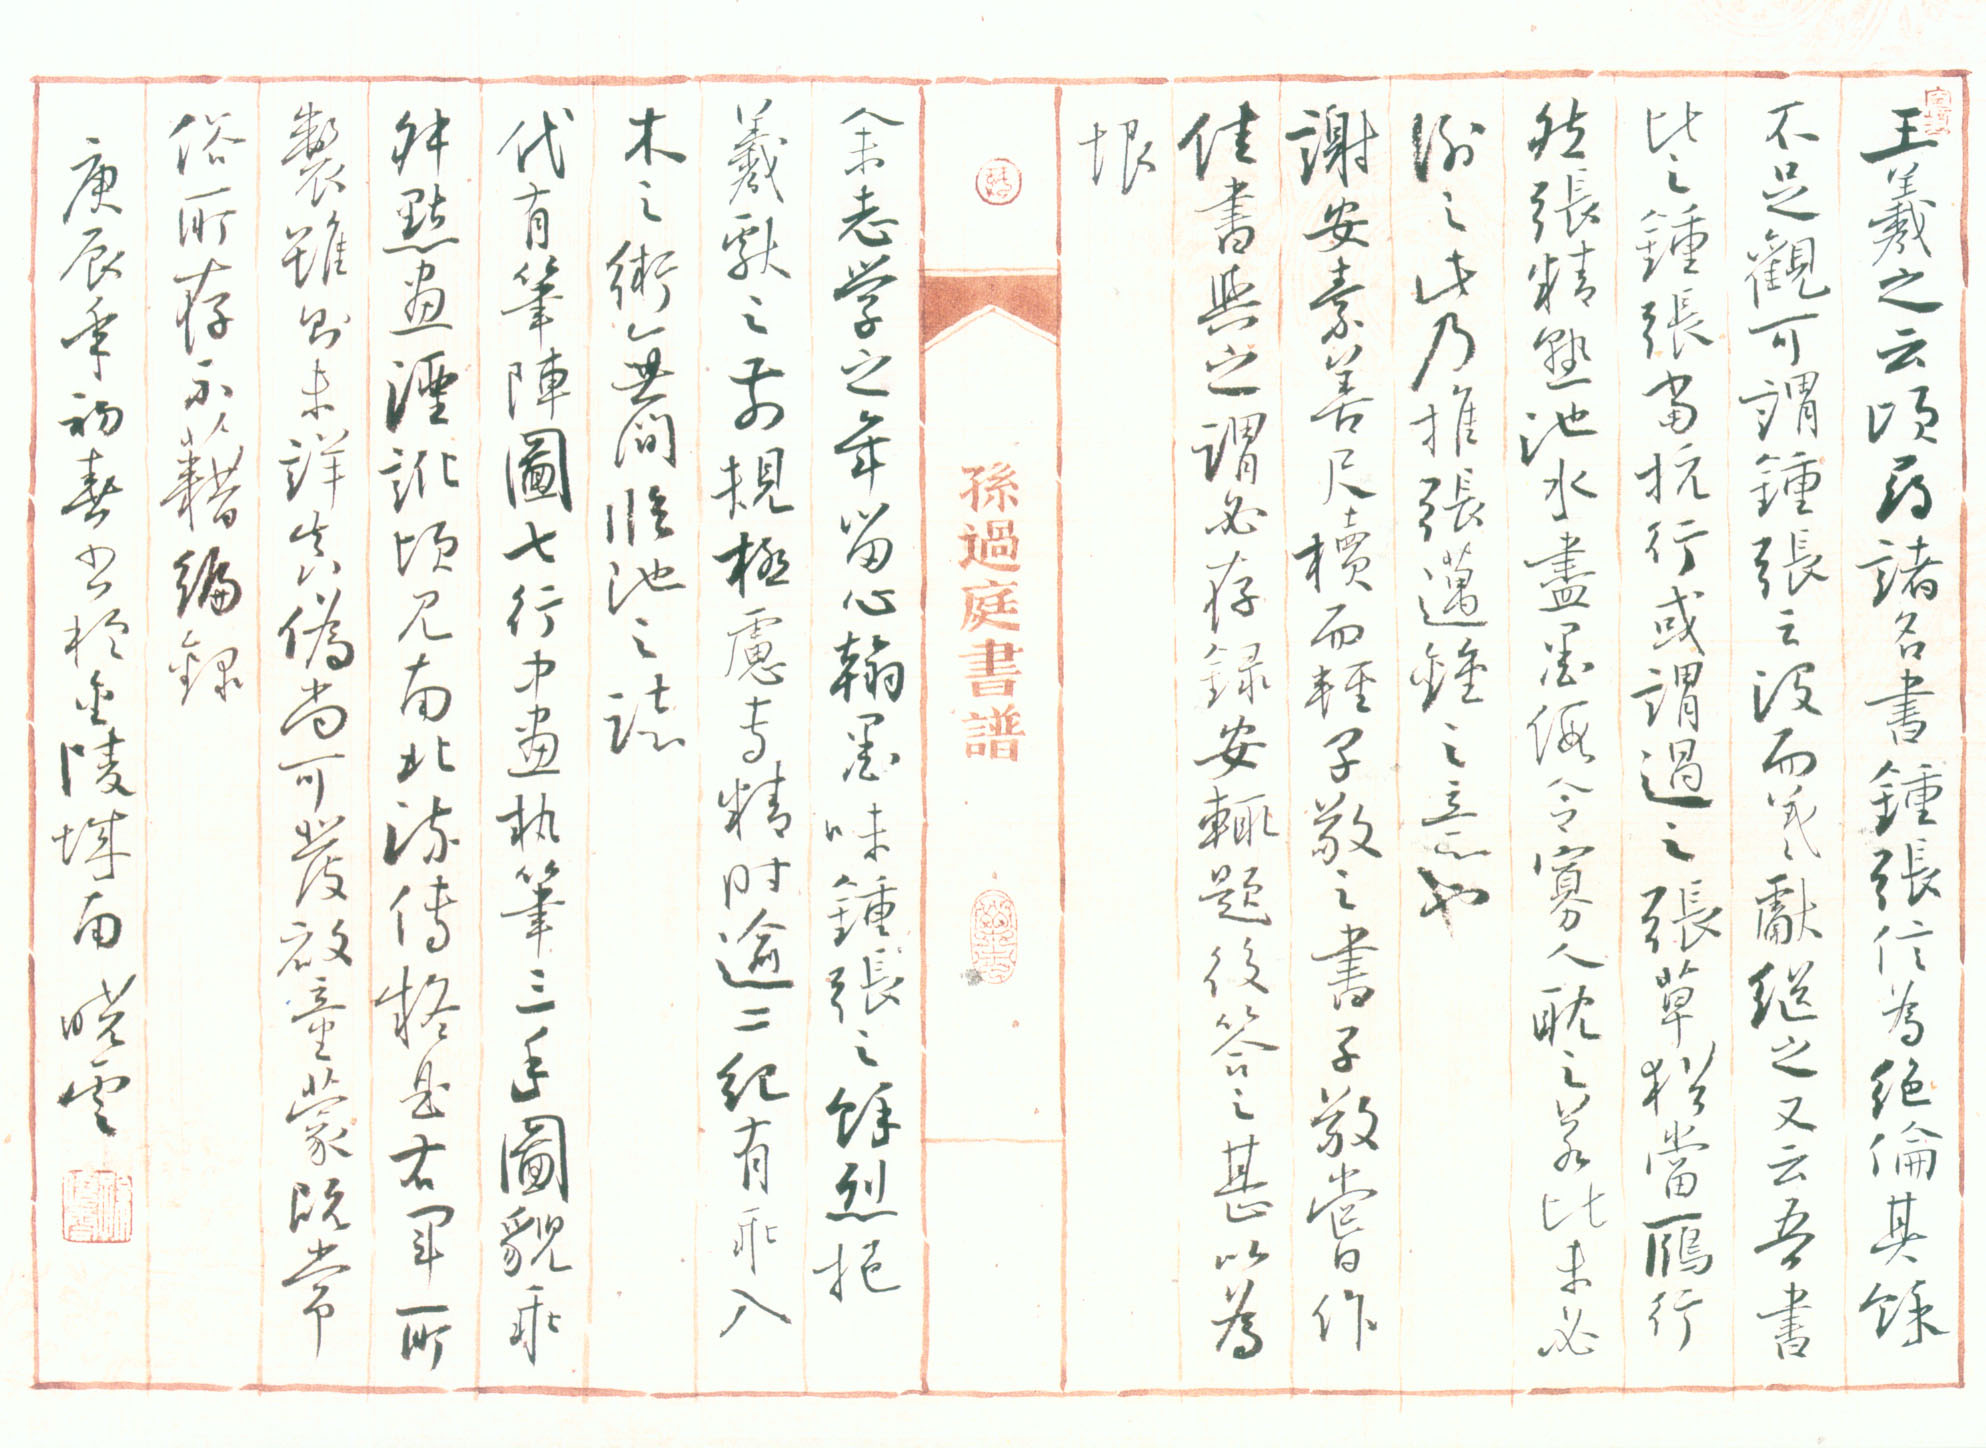 王羲之云頃尋諸名書鍾張信為絕倫其餘
不足觀可謂鍾張云沒而羲獻繼之又云吾書
比之鍾張當抗行或謂過之張草猶當鴈行
然張精熟池水盡墨假令寡人耽之若此未必
謝之此乃推張邁鍾之意也
謝安素善尺櫝而輕子敬之書子敬嘗作
佳書與之謂必存錄安輒題後答之甚以為
恨
孫過庭書譜
余志学之年留心翰墨味鍾張之餘烈挹
羲獻之前規極慮專精时逾二紀有乖入
木之術無间臨池之誌
代有筆陣圖七行中畫执筆三手圖貌乖
舛點畫湮訛頃见南北流傳格是右軍所
製雖则未詳真偽尚可發啟童蒙既常
俗所存不藉編錄
庚辰年初春书於金陵城南 晓雲